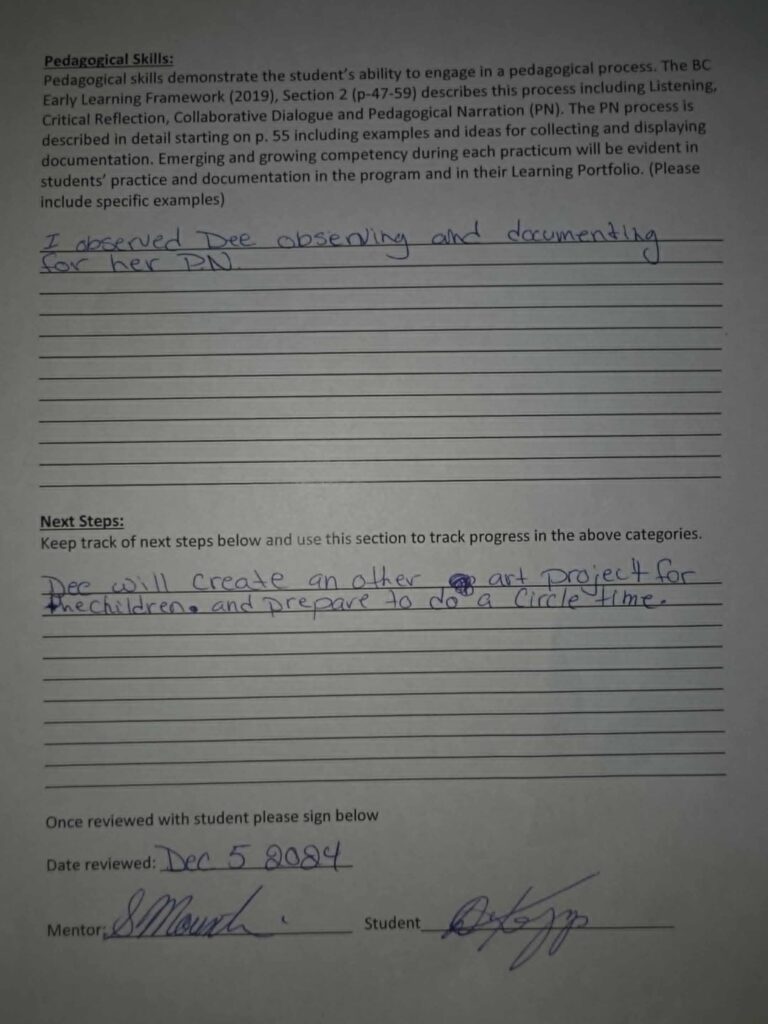 Pedagogical Skills:
Pedagogical skills demonstrate the student's ability to engage in a pedagogical process. The BC
Early Learning Framework (2019), Section 2 (p-47-59) describes this process including Listening,
Critical Reflection, Collaborative Dialogue and Pedagogical Narration (PN). The PN process is
described in detail starting on p. 55 including examples and ideas for collecting and displaying
documentation. Emerging and growing competency during each practicum will be evident in
students' practice and documentation in the program and in their Learning Portfolio. (Please
include specific examples)
I observed Dee observing and documenting
for her PN.
Next Steps:
Keep track of next steps below and use this section to track progress in the above categories.
Dee will create an other art project for
the children. and prepare to do a Circle time.
Once reviewed with student please sign below
Date reviewed: Dec 5 2024
Mentor: Student